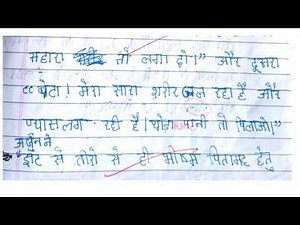 सहारा तो लगा दो।" और दूसरा
"बेटा! मेरा सारा शरीर जल रहा है और
प्यास लग रही है। थोड़ा पानी तो पिलाओ।
अर्जुन ने
झट से तीरो से ही भीष्म पितामह हेतु